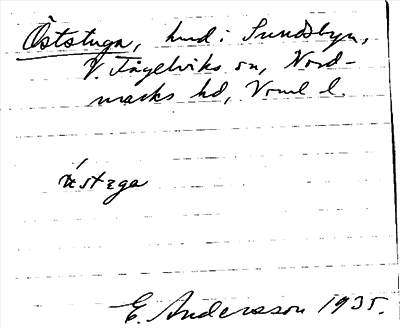 Öststuga, hmd i Sundsbyn,
V. Fågelviks sn, Nord-
marks hd, Vrml l.
E. Andersson 1935.